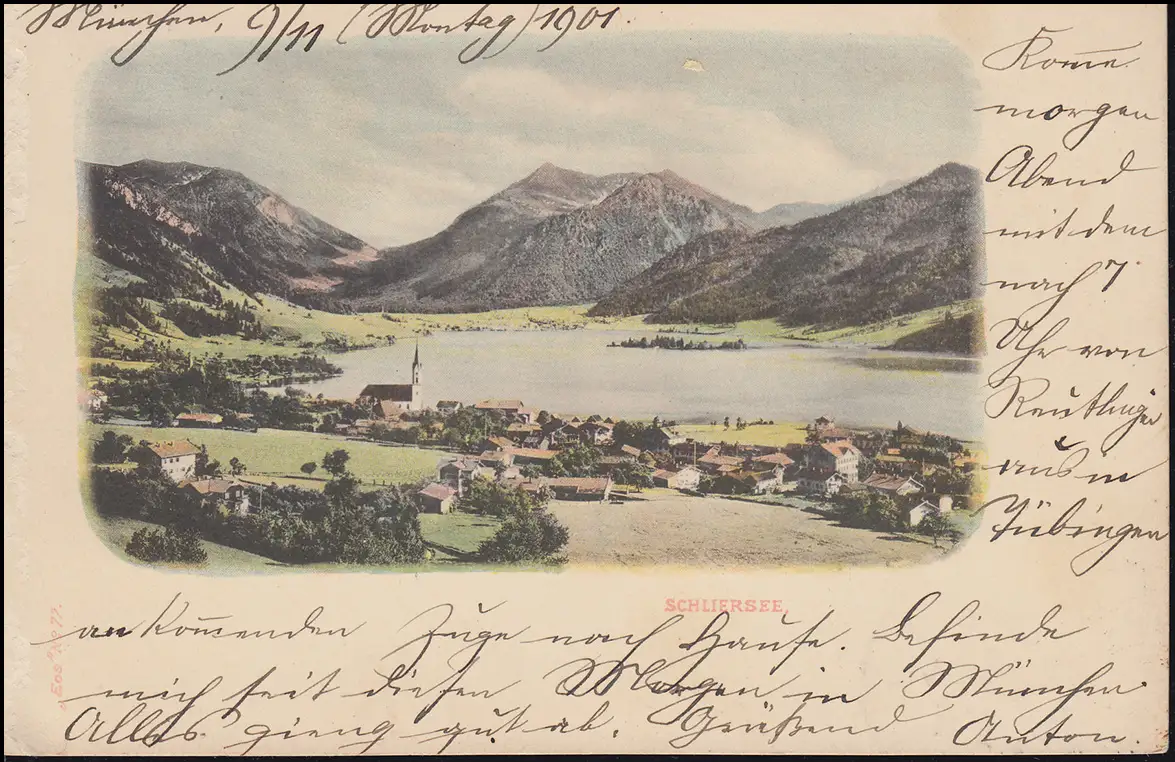 München, 9/11 (Montag) 1901.
Kom̄e
morgen
Abend
mit dem
nach 7
Uhr von
Reutlingen
aus in
Tübingen
SCHLIERSEE.
ankom̄enden Zuge nach Hause. Befinde
mich seit diesen Morgen in München.
Alles gieng gut ab. Grüßend Anton.